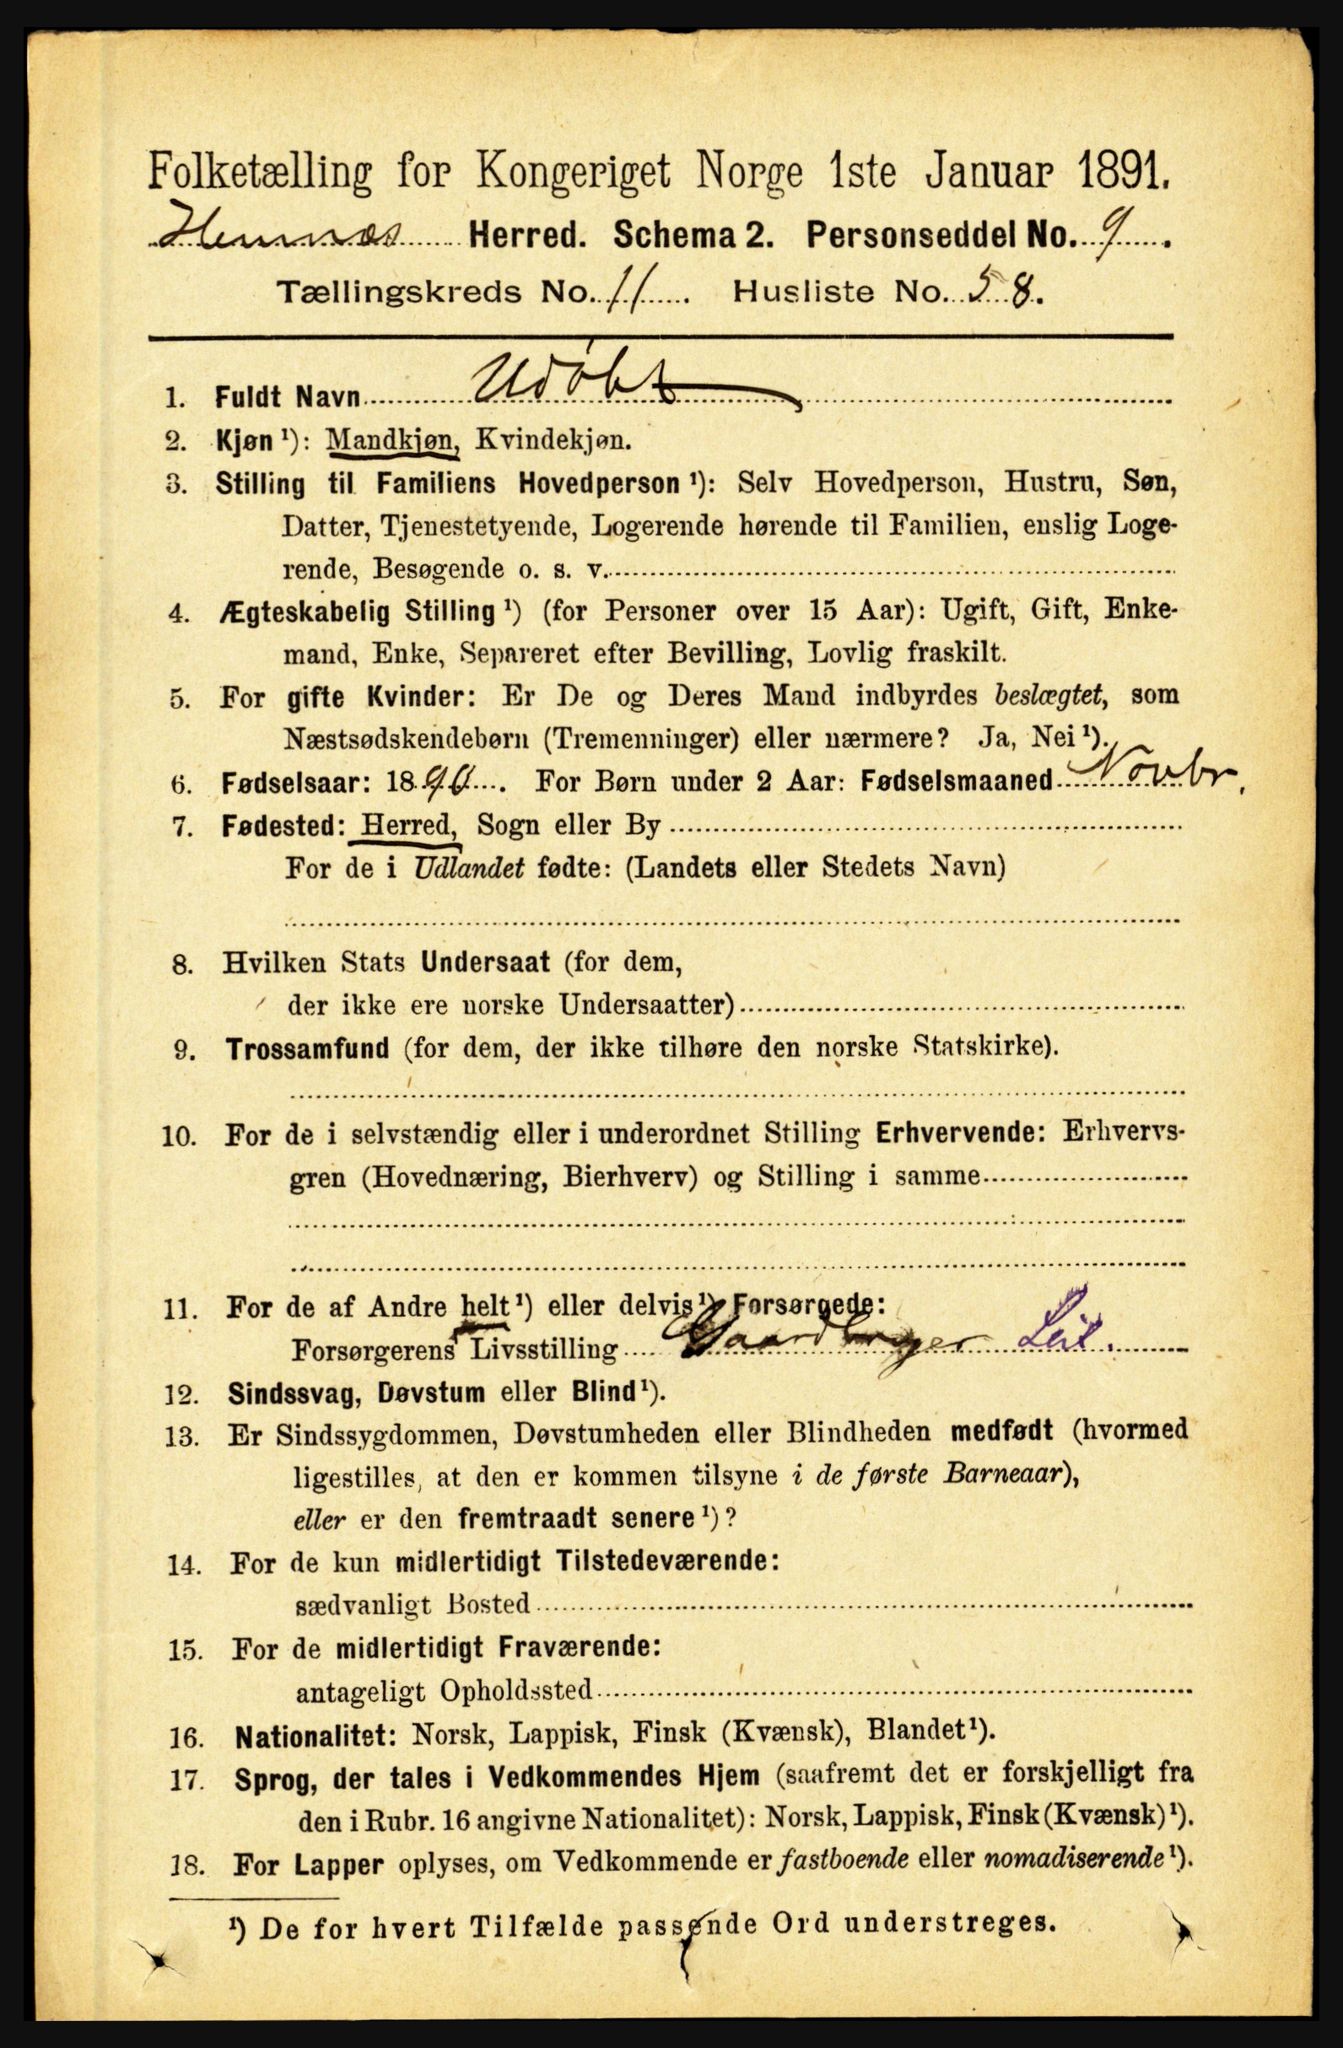 Folketælling for Kongeriget Norge 1ste Januar 1891.
Hemnæs Herred. Schema 2. Personseddel No. 9.
Tællingskreds No. 11. Husliste No. 58.
1. Fuldt Navn Udøbt
2. Kjøn¹): Mandkjøn, Kvindekjøn.
3. Stilling til Familiens Hovedperson¹): Selv Hovedperson, Hustru, Søn,
Datter, Tjenestetyende, Logerende hørende til Familien, enslig Loge-
rende, Besøgende o. s. v.
4. Ægteskabelig Stilling¹) (for Personer over 15 Aar): Ugift, Gift, Enke-
mand, Enke, Separeret efter Bevilling, Lovlig fraskilt.
5. For gifte Kvinder: Er De og Deres Mand indbyrdes beslægtet, som
Næstsødskendebørn (Tremenninger) eller nærmere? Ja, Nei¹).
6. Fødselsaar: 1890. For Børn under 2 Aar: Fødselsmaaned Novbr.
7. Fødested: Herred, Sogn eller By
For de i Udlandet fødte: (Landets eller Stedets Navn)
8. Hvilken Stats Undersaat (for dem,
der ikke ere norske Undersaatter)
9. Trossamfund (for dem, der ikke tilhøre den norske Statskirke).
10. For de i selvstændig eller i underordnet Stilling Erhvervende: Erhvervs-
gren (Hovednæring, Bierhverv) og Stilling i samme
11. For de af Andre helt¹) eller delvis¹) Forsørgede:
Forsørgerens Livsstilling Gaardbruger Leil.
12. Sindssvag, Døvstum eller Blind¹).
13. Er Sindssygdommen, Døvstumheden eller Blindheden medfødt (hvormed
ligestilles, at den er kommen tilsyne i de første Barneaar),
eller er den fremtraadt senere¹)?
14. For de kun midlertidigt Tilstedeværende:
sædvanligt Bosted
15. For de midlertidigt Fraværende:
antageligt Opholdssted
16. Nationalitet: Norsk, Lappisk, Finsk (Kvænsk), Blandet¹).
17. Sprog, der tales i Vedkommendes Hjem (saafremt det er forskjelligt fra
den i Rubr. 16 angivne Nationalitet): Norsk, Lappisk, Finsk (Kvænsk)¹).
18. For Lapper oplyses, om Vedkommende er fastboende eller nomadiserende¹).
¹) De for hvert Tilfælde passende Ord understreges.